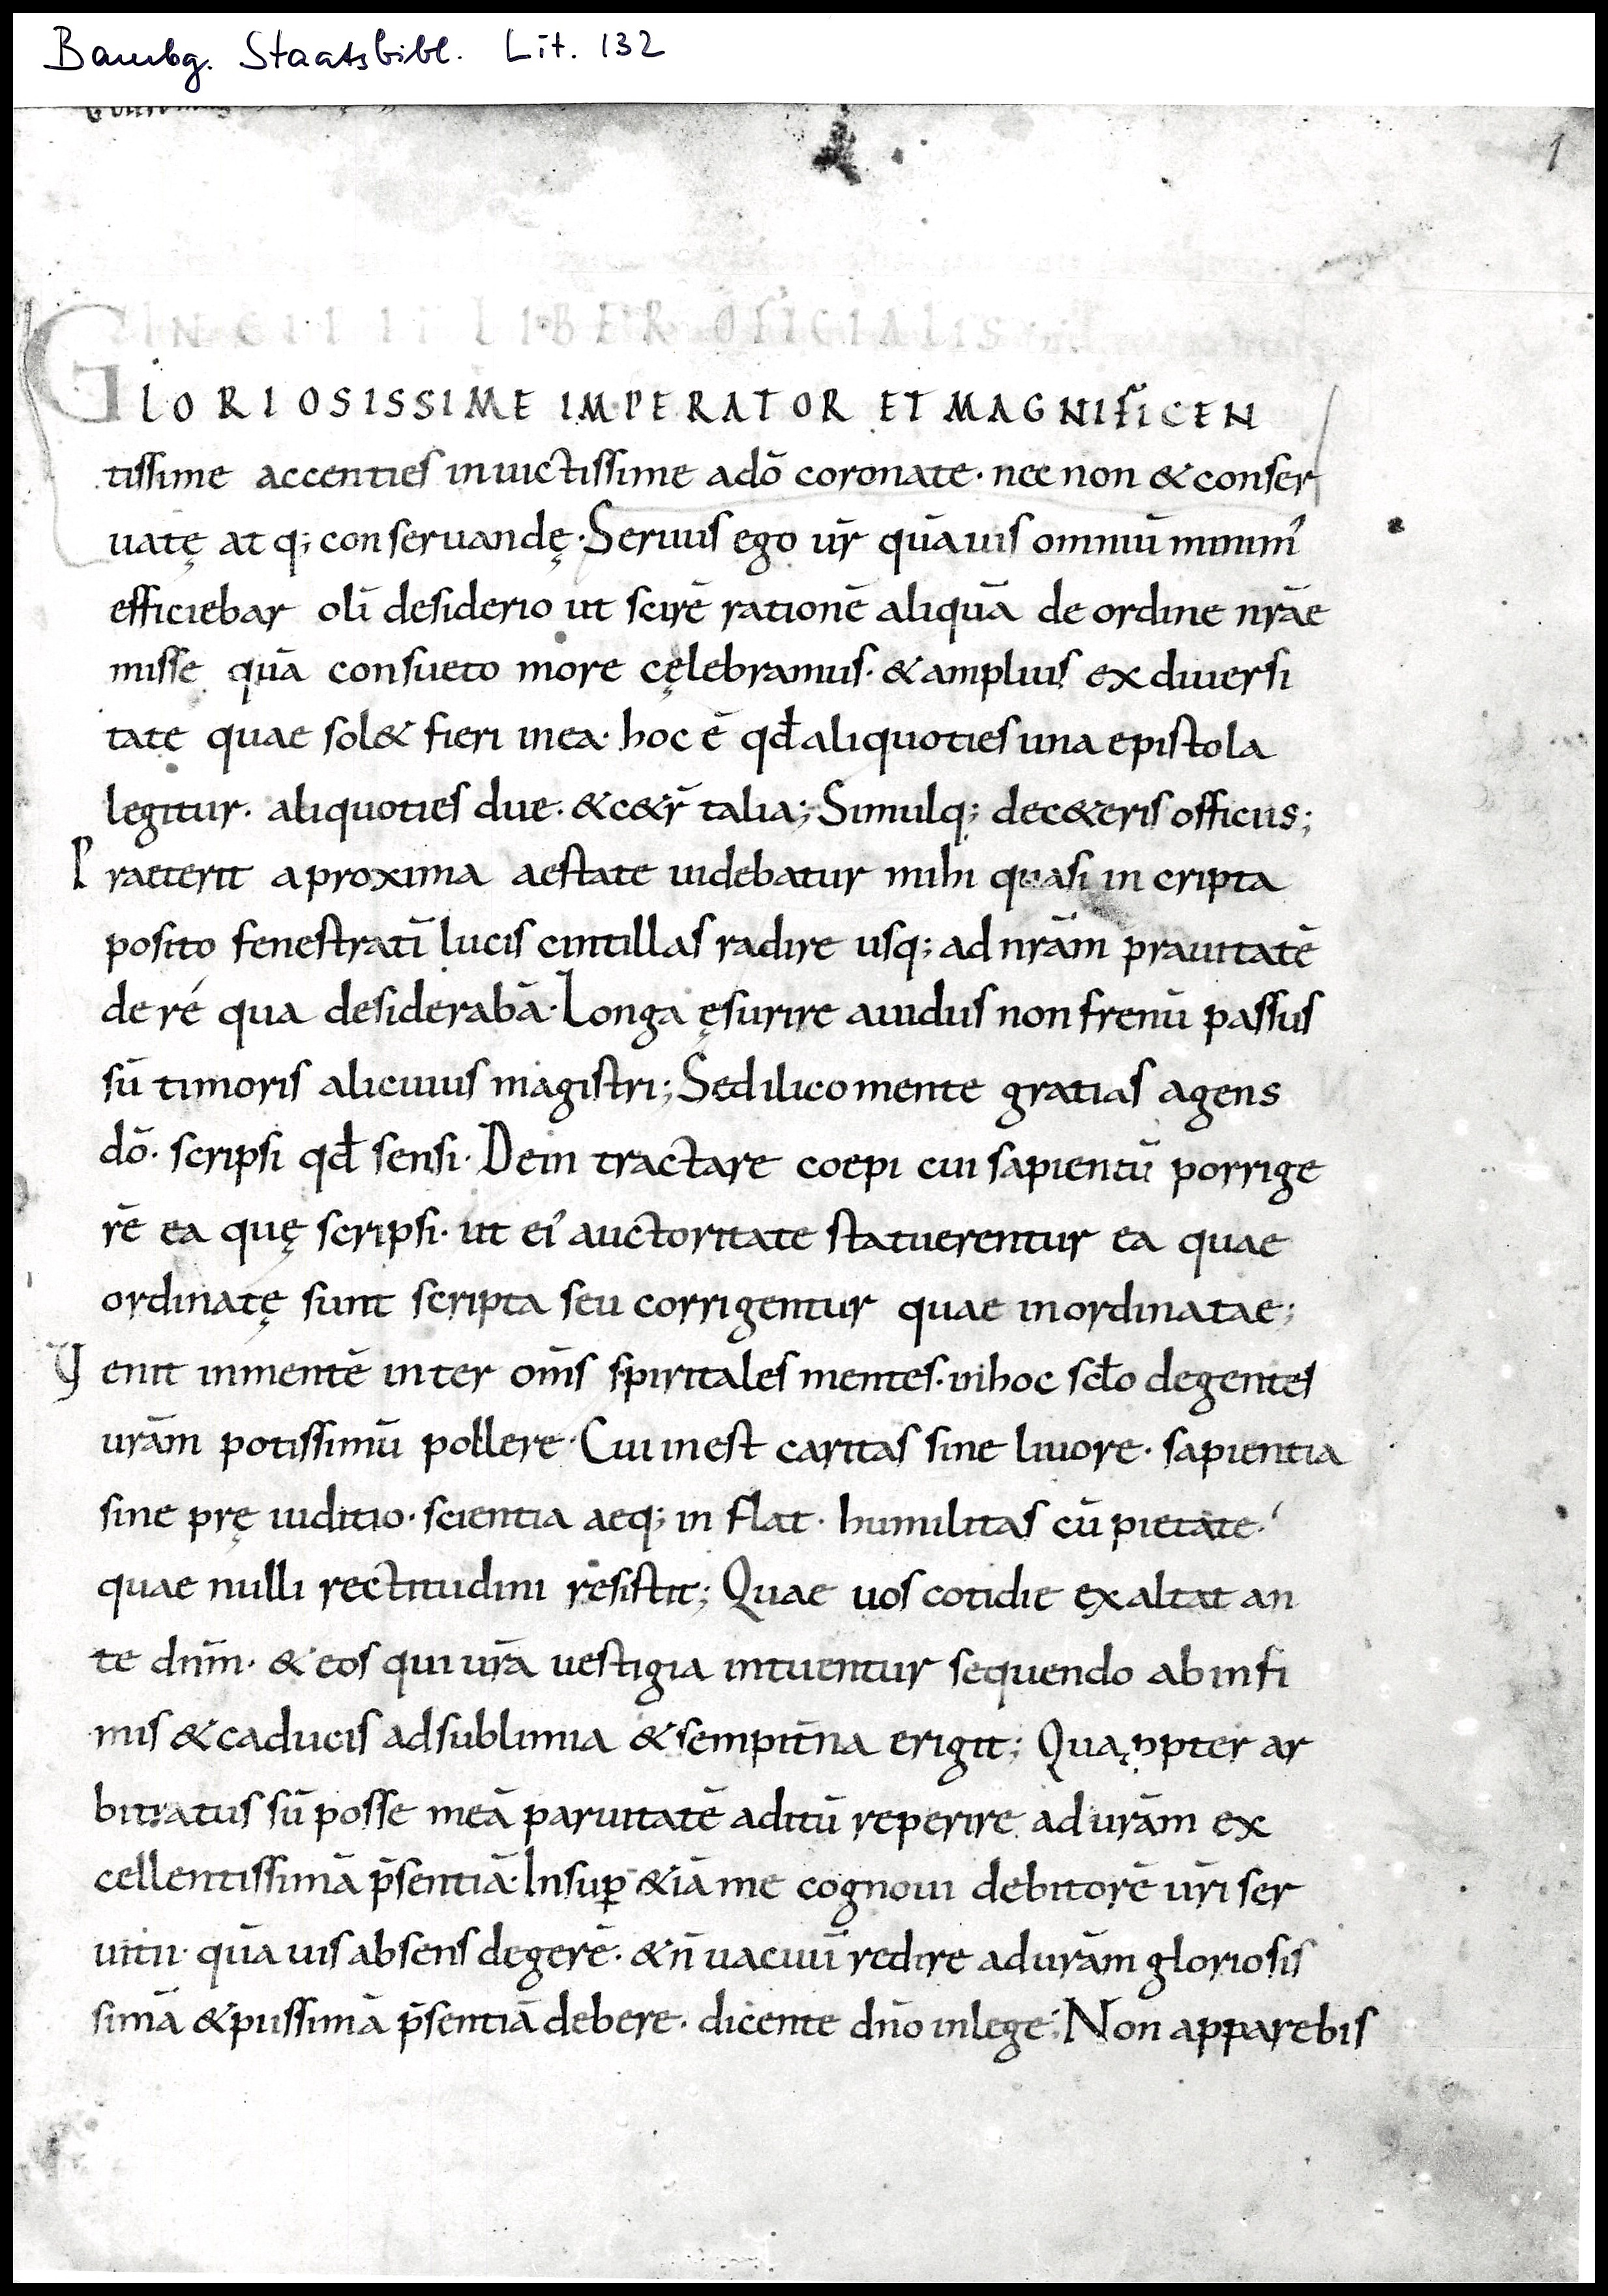 Bambg. Staatsbibl. Lit. 132
1
LIBER OFICIALIS
GLORIOSISSIME IMPERATOR ET MAGNIFICEN
tissime accenties inuictissime adō coronate · nec non & conser
uatę at q; conseruandę · Seruus ego ur̄ quāuis omniū minim᾽
efficiebar olī desiderio ut scirē rationē aliquā de ordine nrāe
misse quā consueto more cęlebramus · & amplius ex diuersi
tate quae sol& fieri inea · hoc ē qđ aliquoties una epistola
legitur · aliquoties due · & c&r̄ talia; Simulq; dec&eris officiis;
Praeterit aproxima aestate uidebatur mihi quasi in cripta
posito fenestratī lucis cintillas radire usq; ad nrām prauitatē
de ré qua desiderabā · Longa ęsurire auidus non frenū passus
sū timoris alicuius magistri; Sed ilico mente gratias agens
dō · scripsi qđ sensi · Dein tractare coepi cui sapientū porrige
rē ea quę scripsi · ut ei᾽ auctoritate statuerentur ea quae
ordinatę sunt scripta seu corrigentur quae inordinatae;
Uenit inmentē inter om̄s spiritales mentes · inhoc scło degentes
urām potissimū pollere · Cui inest caritas sine liuore · sapientia
sine prę iuditio · scientia aeq; in flat · humilitas cū pietate ·
quae nulli rectitudini resistit; Quae uos cotidie exaltat an
te dnm̄ · & eos qui urā uestigia intuentur sequendo ab infi
mis & caducis ad sublimia & sempit̄na erigit; Quą ꝓpter ar
bitratus sū posse meā paruitatē aditū reperire ad urām ex
cellentissimā p̄sentiā · Insuꝑ &iā me cognoui debitorē ūri ser
uitii · quā uis absens degerē · & n̄ uacuū redire ad urām gloriosis
simā & piissimā p̄sentiā debere · dicente dn̄o inlege · Non apparebis